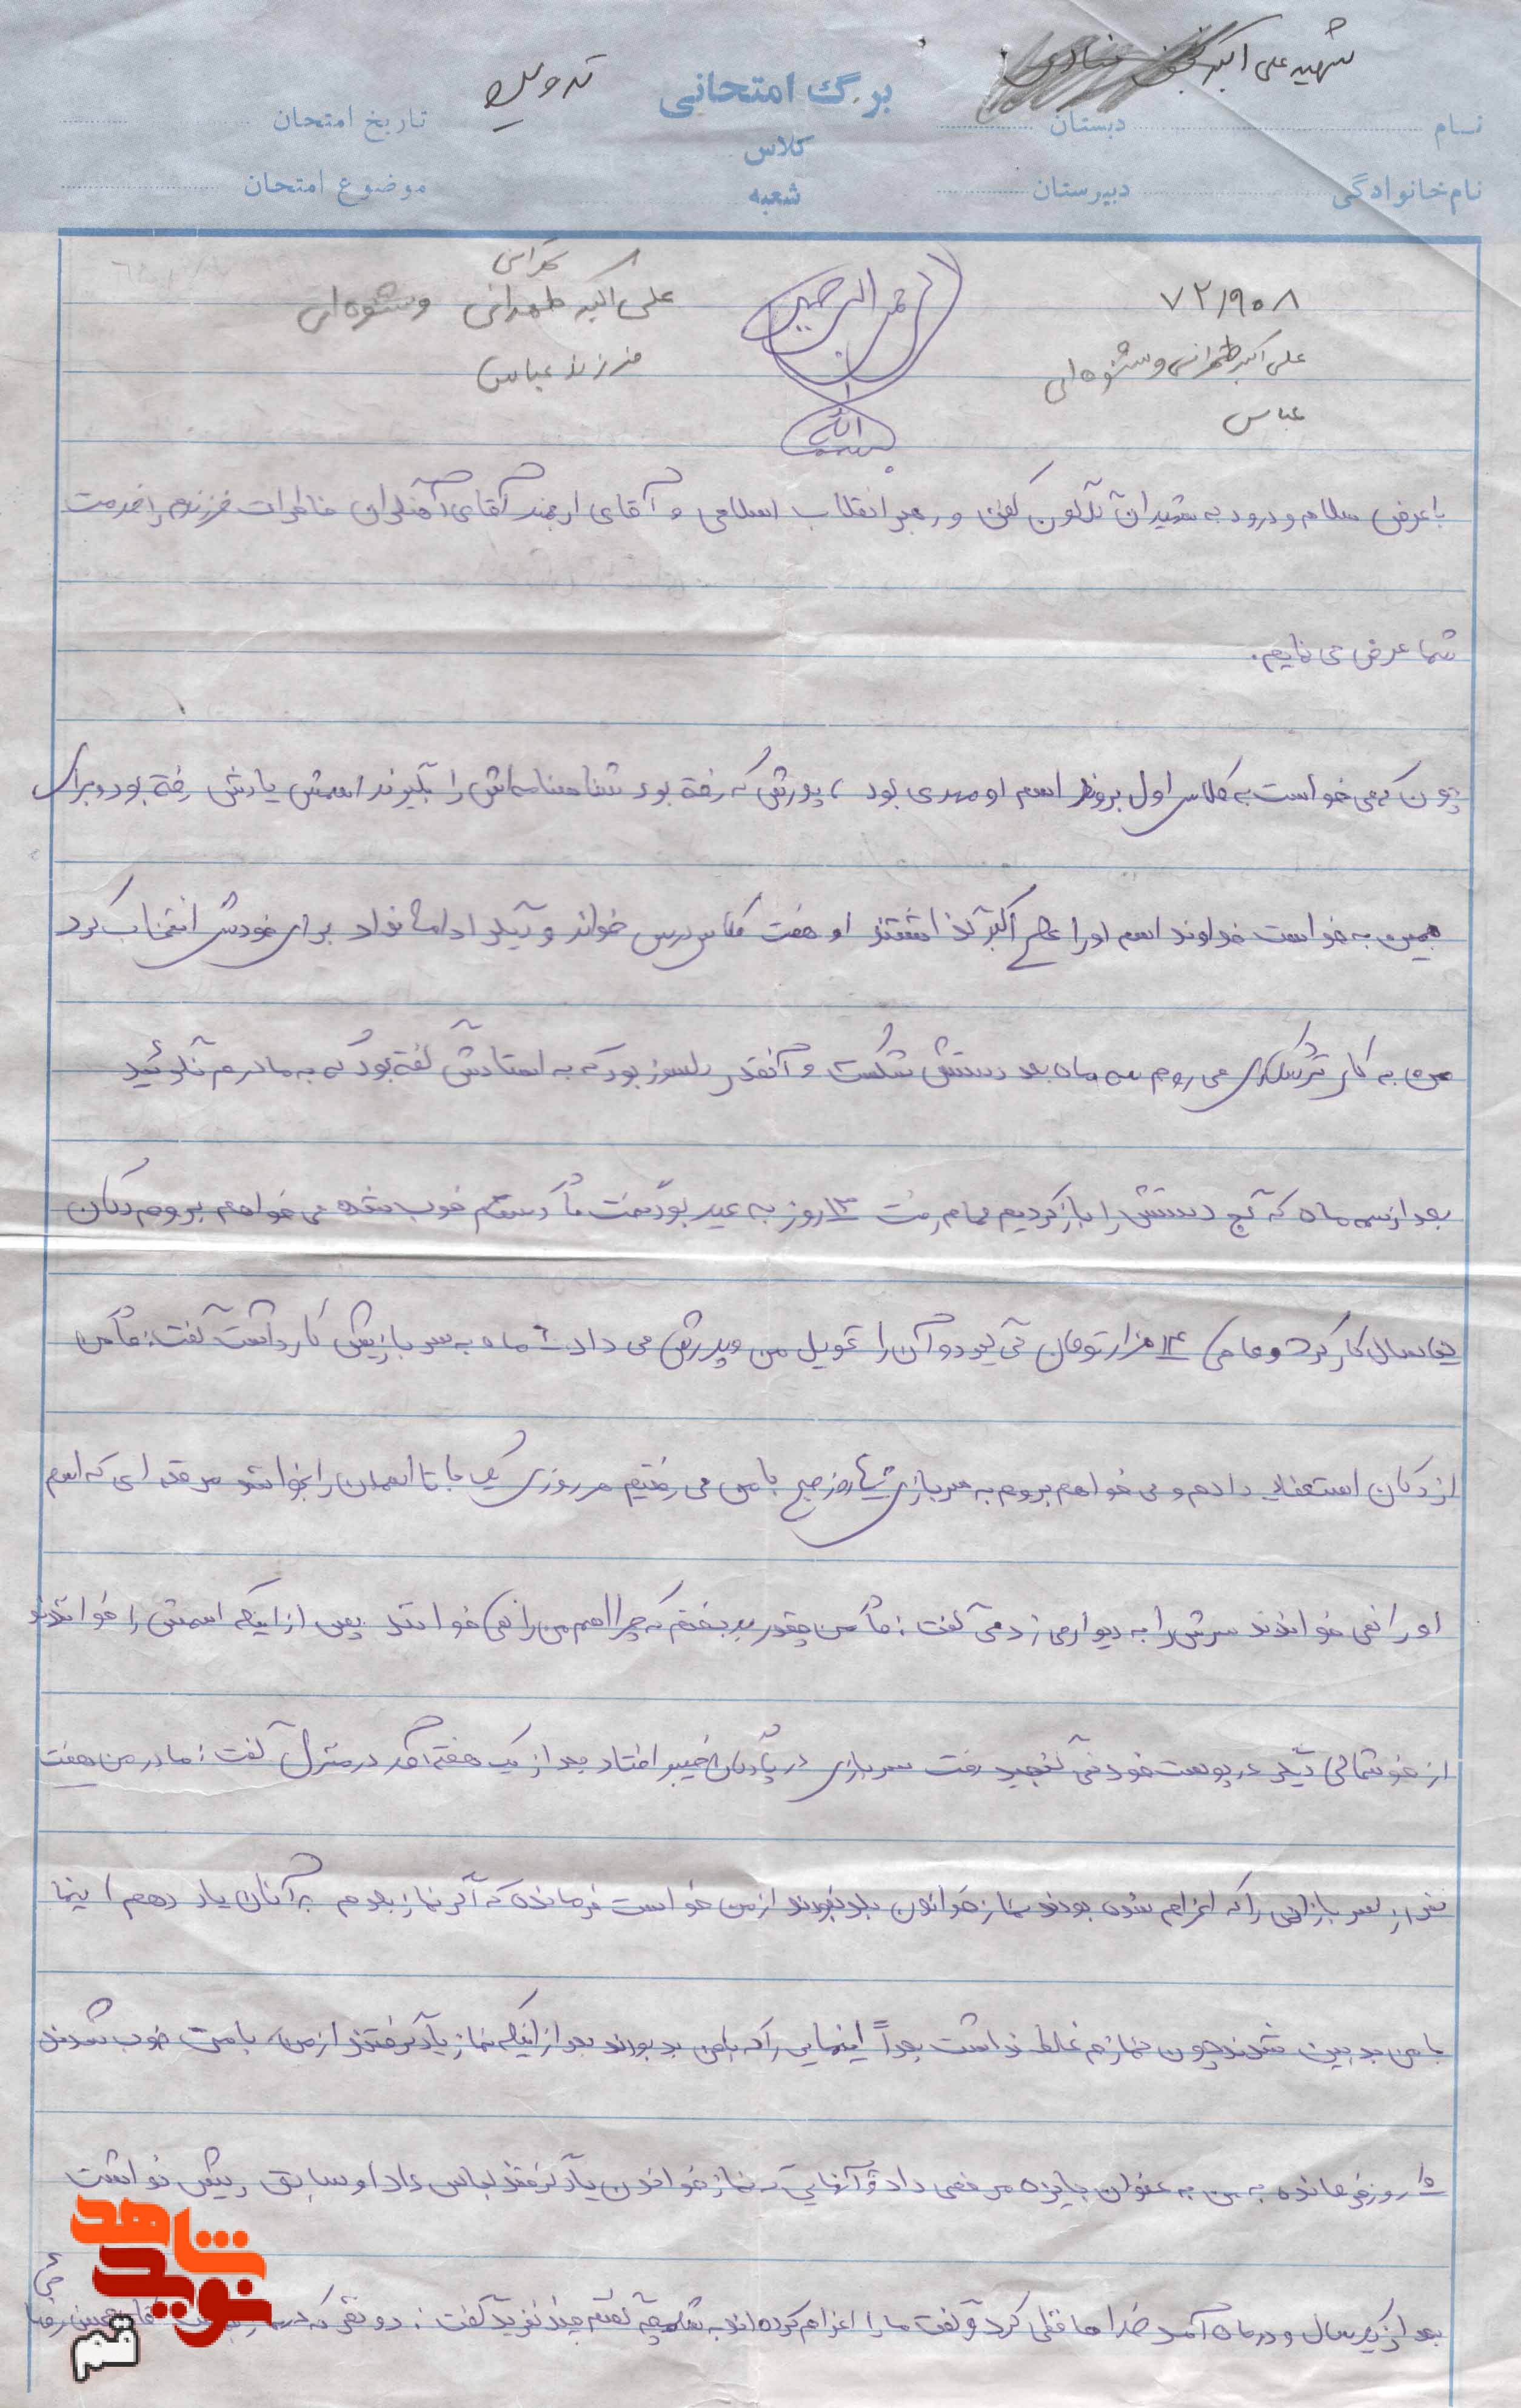 شهید علی اکبر
تدوین
برگ امتحانی
نام دبستان تاریخ امتحان
کلاس
نام خانوادگی دبیرستان موضوع امتحان
شعبه
۷۲/۹۰۸
علی اکبر طهرانی وشنوه ای
عباس
بسم الله الرحمن الرحیم
تهرانی
علی اکبر طهرانی وشنوه ای
فرزند عباس
با عرض سلام و درود به شهیدان گلگون کفن و رهبر انقلاب اسلامی و آقای ارجمند آقای خاطرات فرزندم را خدمت
شما عرض می نمایم.
چون که می خواست به کلاس اول برود اسم او مهدی بود، پدرش که رفته بود شناسنامه اش را بگیرند اسمش یادش رفته بود و برای
همین به خواست خداوند اسم او را علی اکبر گذاشتند او هفت کلاس درس خواند و دیگر ادامه نداد برای خودش انتخاب کرد
من به کار می روم سه ماه بعد دستش شکست و آنقدر دلسوز بود که به استادش گفته بود که به مادرم نگوئید
بعد از سه ماه که گچ دستش را باز کردیم حمام رفت ۱۳ روز به عید بود گفت مادر دستم خوب شده می خواهم بروم دکان
سال کار کرد و ماهی ۱۴ هزار تومان می گیرد و آن را تحویل من و پدرش می داد ۶ ماه به سربازیش کار داشت گفت: مادر من
از دکان استعفا دادم و می خواهم بروم به سربازی روز صبح با من می رفتیم هر روزی یک جا تا اسمان را بخوانند هر دفعه ای که اسم
او را نمی خواندند سرش را به دیوار می زد می گفت: مادر من چقدر بدبختم که چرا اسم من را نمی خوانند پس از اینکه اسمش را خواندند
از خوشحالی دیگر در پوست خود نمی گنجید رفت سربازی در پادگان خیبر افتاد بعد از یک هفته آمد در منزل گفت: مادر من هفت
نفر از سربازانی را که اعزام شده بودند نماز خواندن بلد نبودند از من خواست فرمانده که اگر نماز بلدم به آنان یاد دهم اینها
با من بد بین شدند چون نمازم غلط نداشت بعداً اینهایی را که با من بد بودند بعد از اینکه نماز یاد گرفتند از من، با من خوب شدند
۱۵ روز فرمانده به من به عنوان جایزه مرخصی داد و آنهایی که نماز خواندن یاد گرفتند لباس داد او سابق ریش نداشت
بعد از یکسال و دو ماه آمد خداحافظی کرد و گفت ما را اعزام کرده اند به شلمچه گفتم چند نفرید گفت: دو نفر که
شاهد
نوید
قم